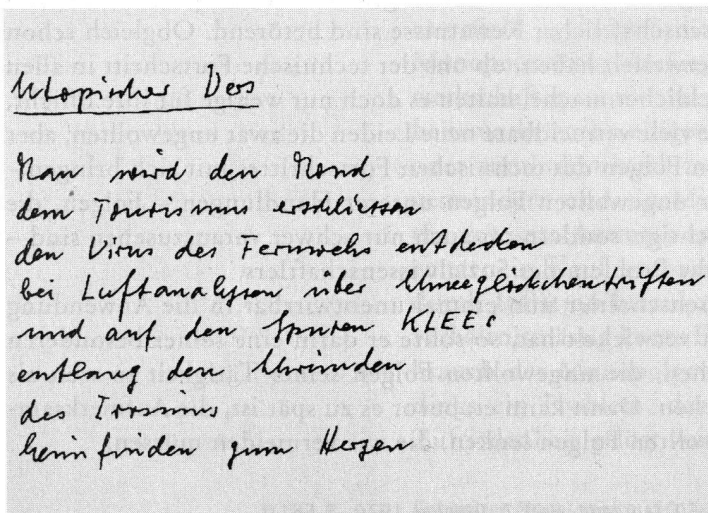 Utopischer Vers
Man wird den Mond
dem Tourismus erschliessen
den Virus des Fernwehs entdecken
bei Luftanalysen über Schneeglöckchentriften
und auf den Spuren KLEEs
entlang den
des Irrsinns
heimfinden zum Herzen